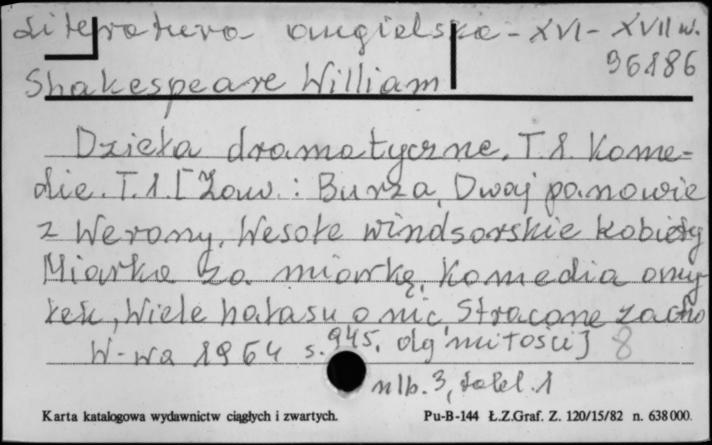 Literatura angielska - XVI - XVII w.
96186
Shakespeare William
Dzieła dramatyczne. T. 1. Kome-
die. T. 1. [Zaw.: Burza, Dwaj panowie
z Werony, Wesołe windsorskie kobiety
Miarka za miarkę, Komedia omy-
łek, Wiele hałasu o nic, Stracone zacho
W-wa 1964 s. 945. dy miłości] 8
nlb. 3, tabl. 1
Karta katalogowa wydawnictw ciągłych i zwartych. Pu-B-144 Ł.Z.Graf. Z. 120/15/82 n. 638000.